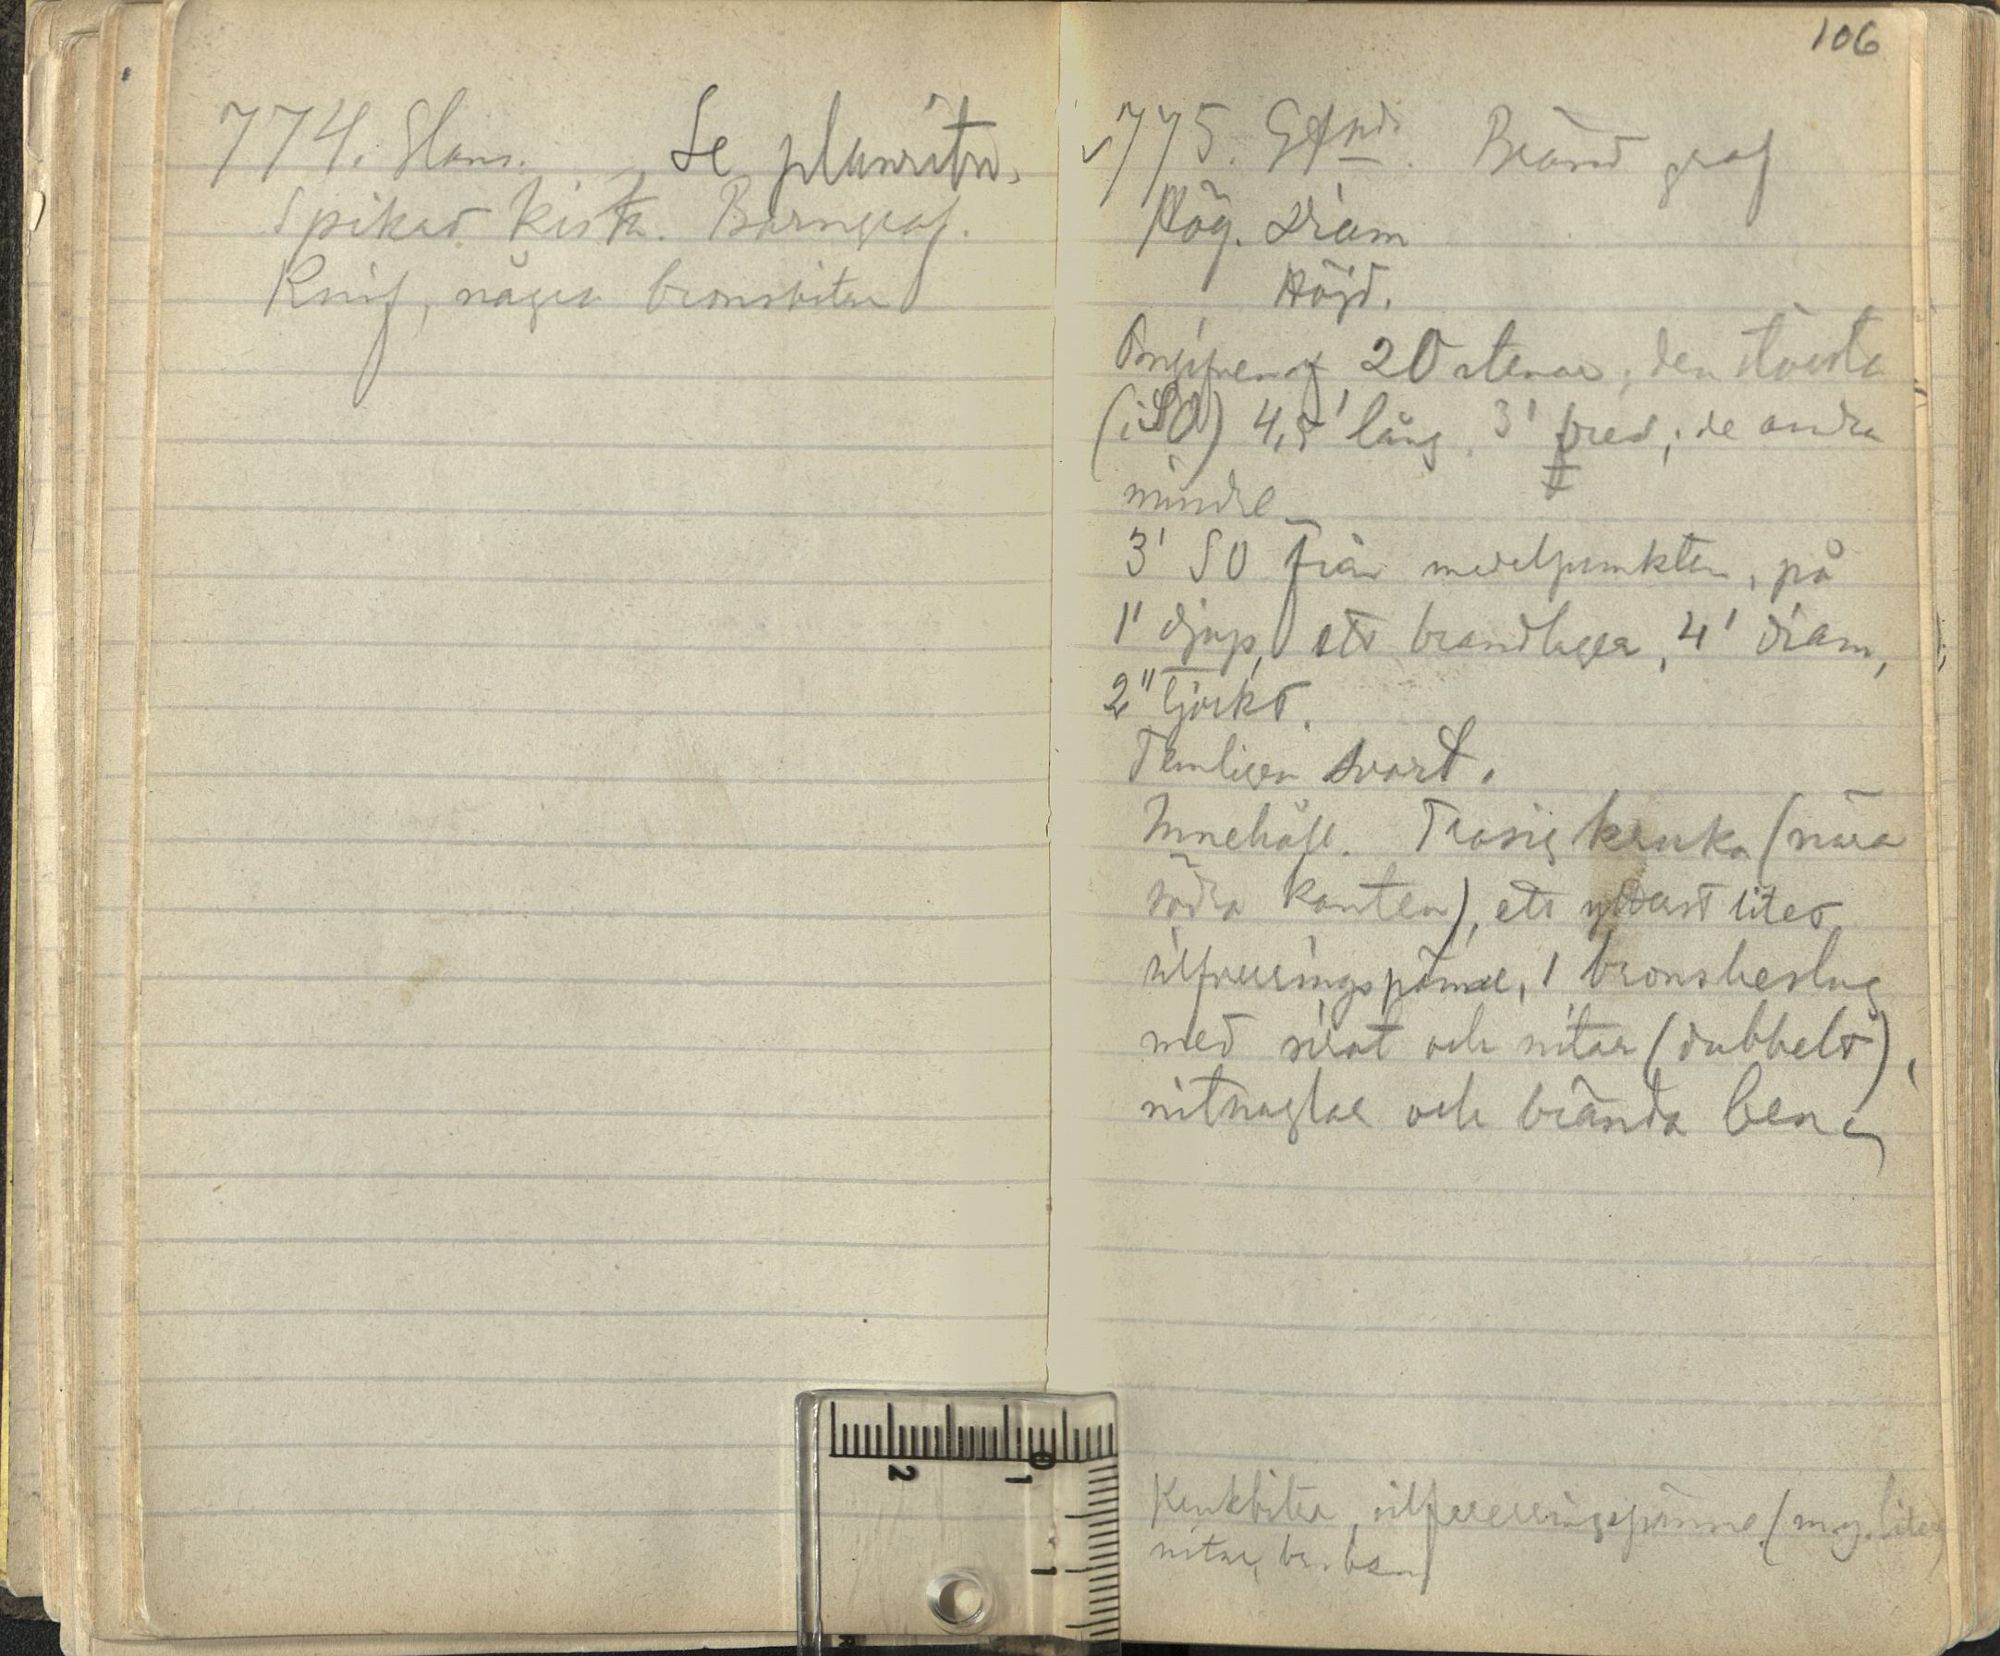 774. Hans. Se planritn.
Spikad kista. Barngraf.
Knif, några bronsbitar
106
775. Bränd graf
Hög. Diam
Höjd.
Omgifven af 20 stenar, den största
(i SO) 4,5' lång, 3' bred; de andra
mindre
3' SO från medelpunkten, på
1' djup, ett brandlager, 4' diam,
2" tjockt.
Temligen svart.
Innehåll. Trasig kruka (nära
södra kanten), ett ytterst litet
silfverringspänne, 1 bronsbeslag
med sirat och nitar (dubbelt),
nitnaglar och brända ben
Krukbitar, silfverringspänne (myc. litet)
nitar, br. ben
2 1 0
1